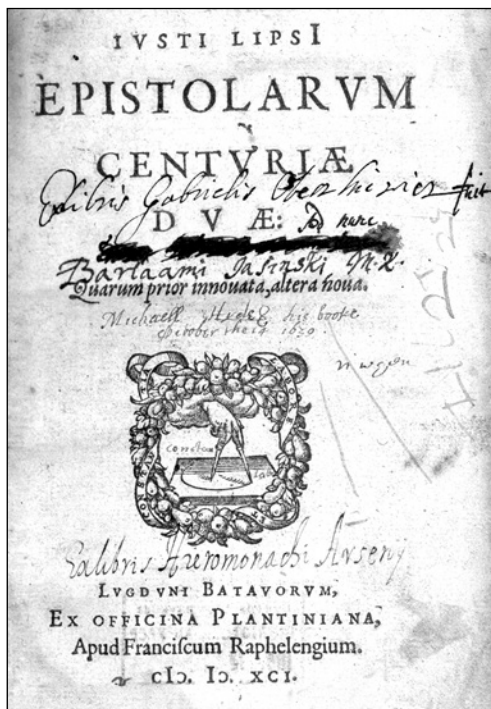 IVSTI LIPSI
EPISTOLARVM
CENTVRIÆ
Exlibris Gabrielis fuit
D V Æ: sed nunc
Barlaami Jasinski M. K.
Quarum prior innovata, altera noua.
Michaell his booke
October the 1630.
CONSTANTIA
LABORE
Constan
Exlibris Hieromonachi Arseny
LVGDVNI BATAVORVM,
EX OFFICINA PLANTINIANA,
Apud Franciſcum Raphelengium.
cIↄ. Iↄ. XCI.